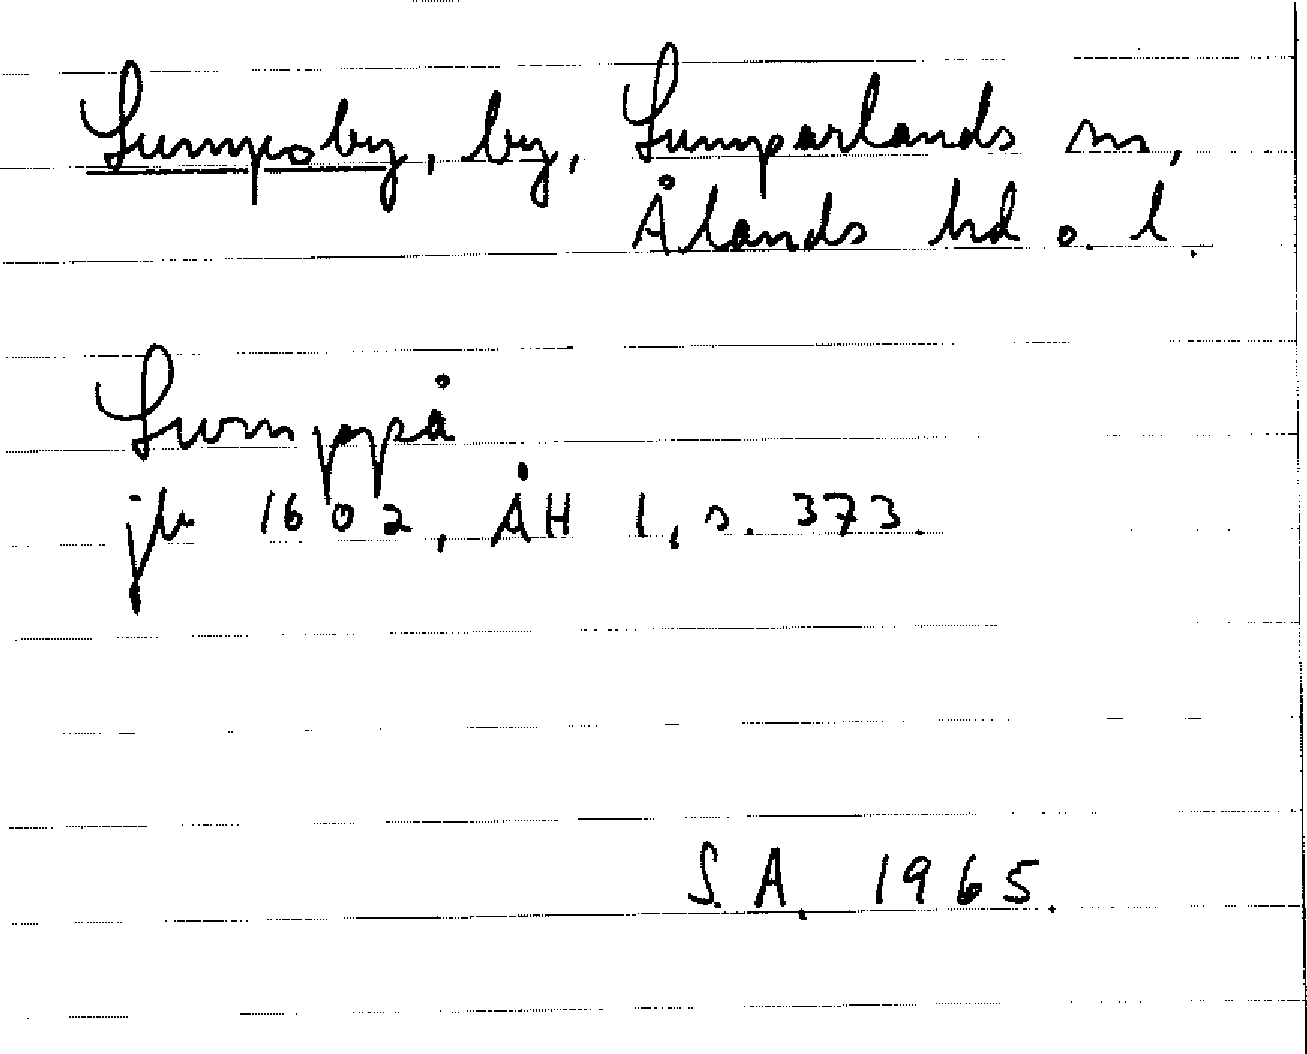 Lumpoby, by, Lumparlands sn,
Ålands hd o. l.
Lumppå
jb 1602, ÅH 1, s. 373.
S. A. 1965.